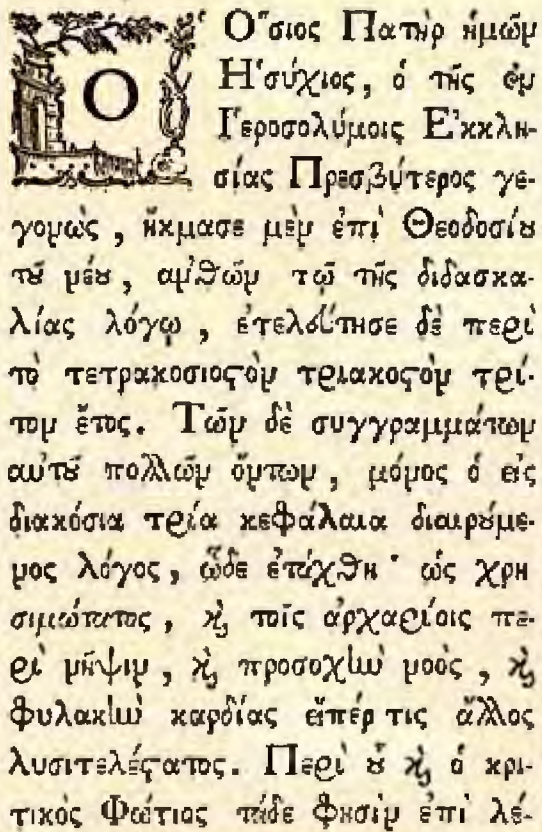 Ὅσιος Πατὴρ ἡμῶν
Ἡσύχιος, ὁ τῆς ἐν
Ἱεροσολύμοις Ἐκκλη-
σίας Πρεσβύτερος γε-
γονὼς, ἤκμασε μὲν ἐπὶ Θεοδοσίου
τοῦ νέου, ἀνθῶν τῷ τῆς διδασκα-
λίας λόγῳ, ἐτελεύτησε δὲ περὶ
τὸ τετρακοσιοστὸν τριακοστὸν τρί-
τον ἔτος. Τῶν δὲ συγγραμμάτων
αὐτοῦ πολλῶν ὄντων, μόνος ὁ εἰς
διακόσια τρία κεφάλαια διαιρούμε-
νος λόγος, ὧδε ἐτάχθη· ὡς χρη
σιμώτατος, καὶ τοῖς ἀρχαρίοις πε-
ρὶ νῆψιν, καὶ προσοχὴν νοὸς, καὶ
φυλακὴν καρδίας εἴπέρ τις ἄλλος
λυσιτελέστατος. Περὶ οὗ καὶ ὁ κρι-
τικὸς Φώτιος τάδε φησὶν ἐπὶ λέ-